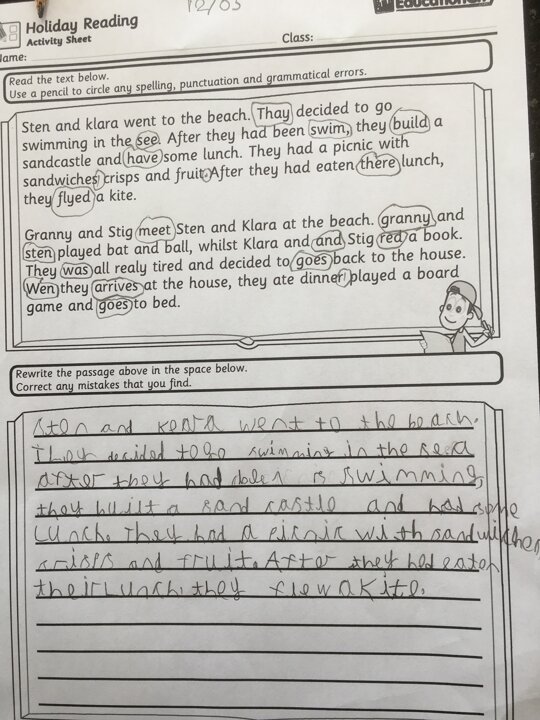 12/03
Education
Holiday Reading
Activity Sheet
Name:
Class:
Read the text below.
Use a pencil to circle any spelling, punctuation and grammatical errors.
Sten and klara went to the beach. Thay decided to go
swimming in the see. After they had been swim, they build a
sandcastle and have some lunch. They had a picnic with
sandwiches crisps and fruit. After they had eaten there lunch,
they flyed a kite.
Granny and Stig meet Sten and Klara at the beach. granny and
sten played bat and ball, whilst Klara and and Stig red a book.
They was all realy tired and decided to goes back to the house.
Wen they arrives at the house, they ate dinner played a board
game and goes to bed.
Rewrite the passage above in the space below.
Correct any mistakes that you find.
Sten and went to the beach.
They decided to go swimming in the sea
after they had swimming,
they built a sand castle and had some
Lunch. They had a picnic with sandwiches
crisps and fruit. After they had eaten
their Lunch. they flew a kite.